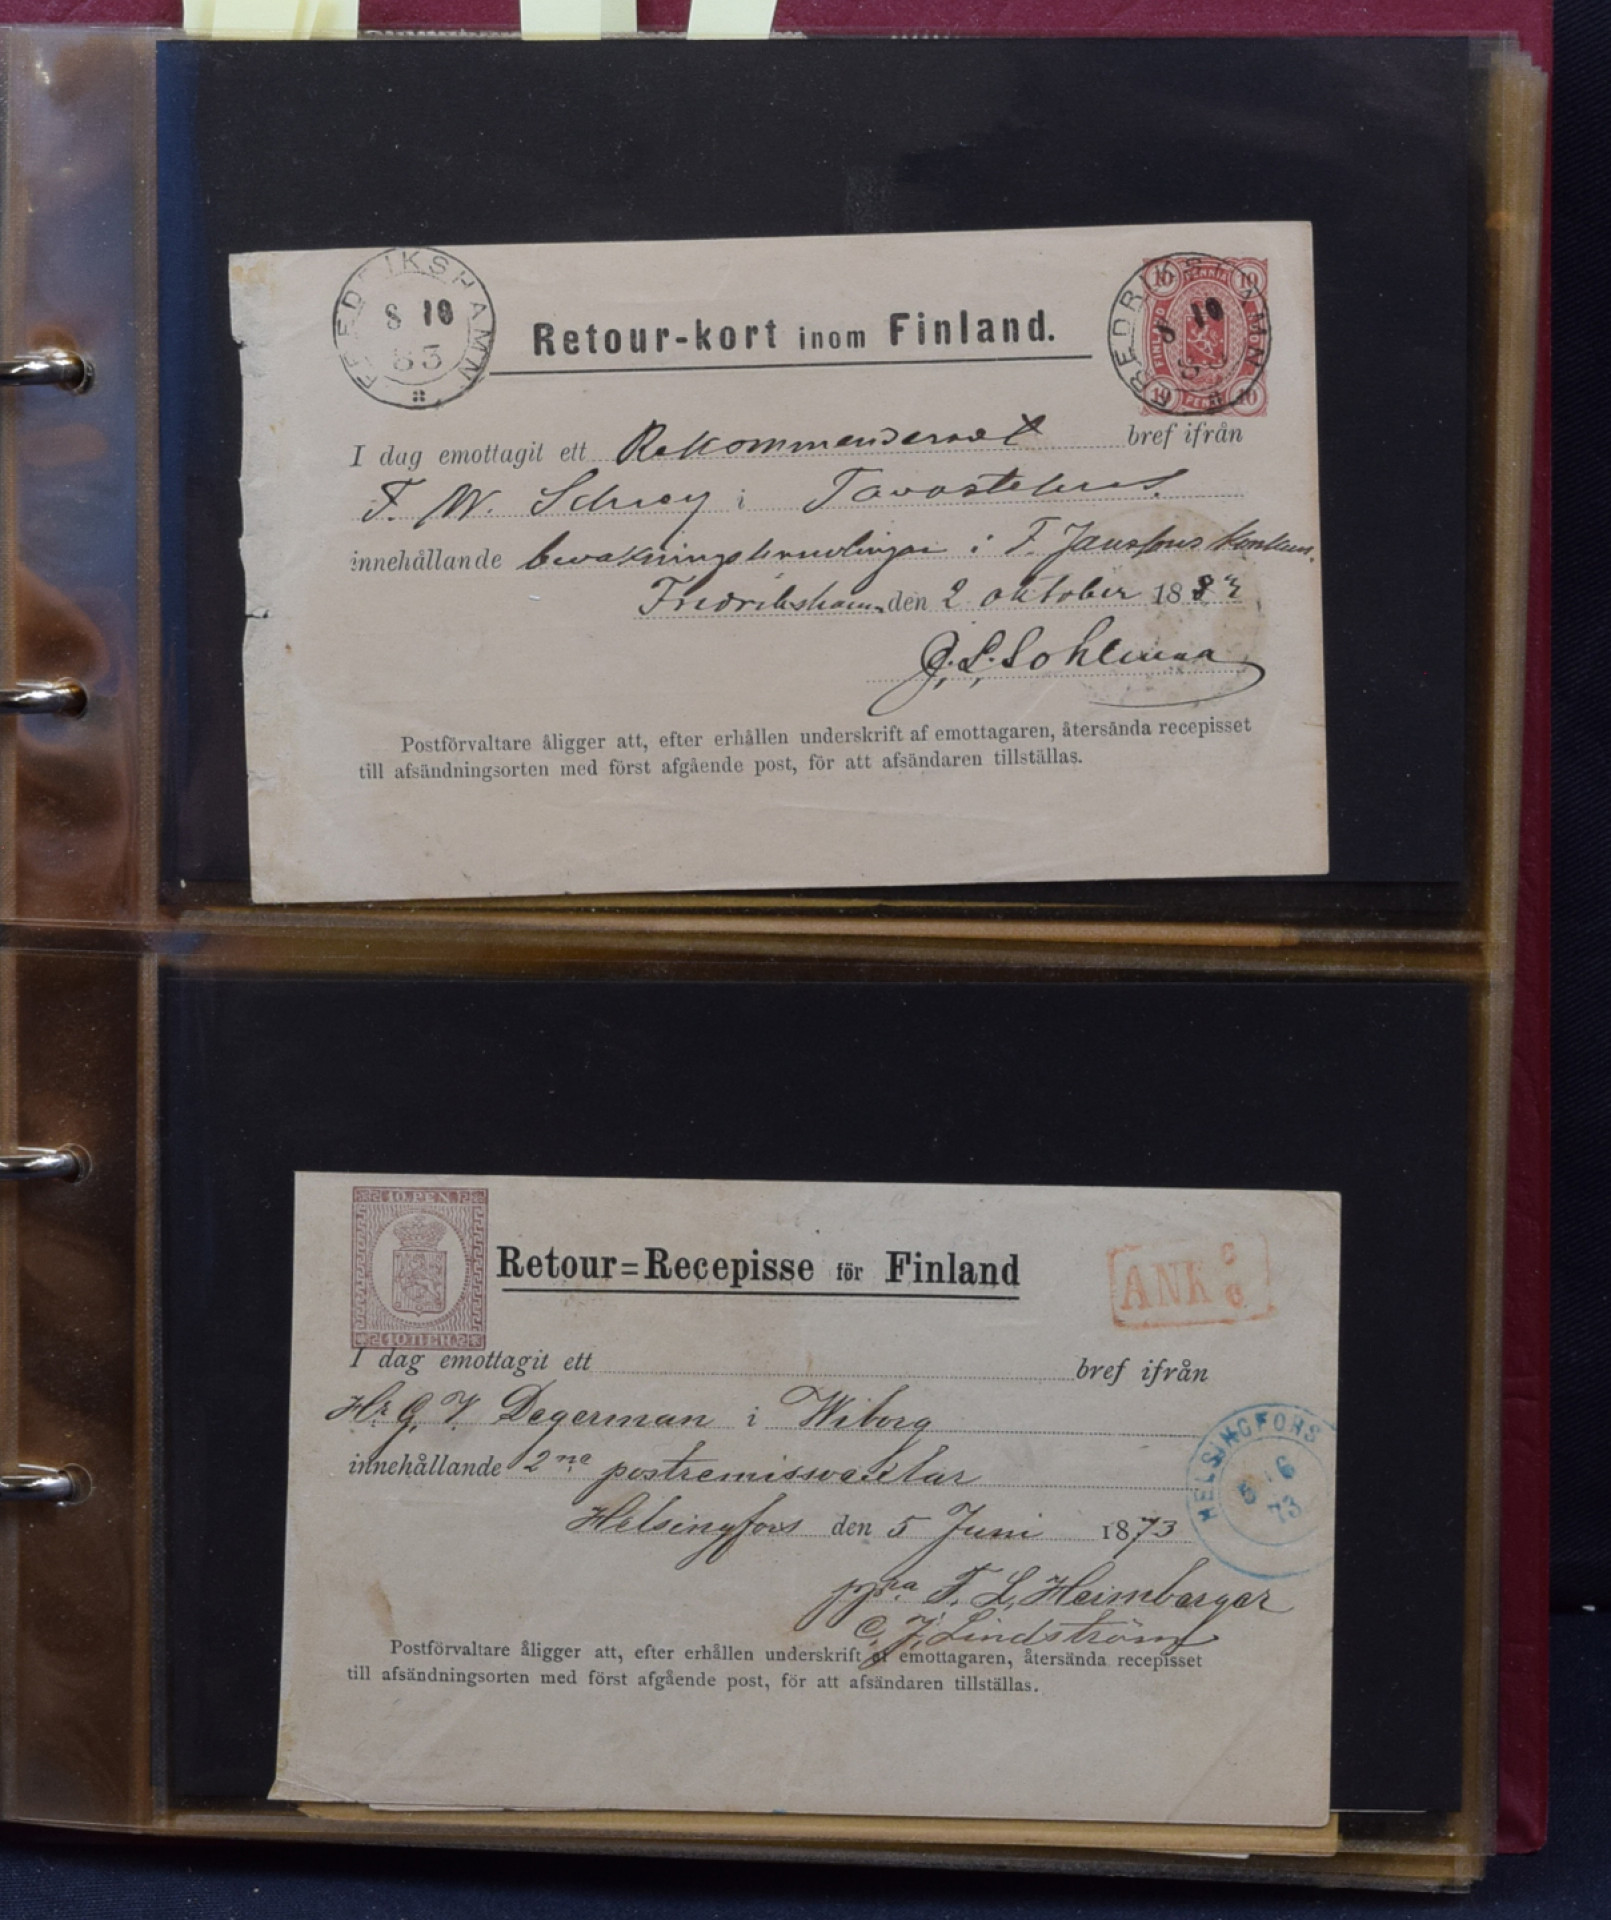 FREDRIKSHAMN
8 10
83
Retour-kort inom Finland.
10 PENNIÄ 10
FINLAND
10 PEN 10
FREDRIKSHAMN
8 10
I dag emottagit ett Rekommenderadt bref ifrån
F. W. i Tavastehus
innehållande bevakningshandlingar i F. Janssons Konkurs.
Fredrikshamn den 2 oktober 1883
J. L. Sohlman
Postförvaltare åligger att, efter erhållen underskrift af emottagaren, återsända recepisset
till afsändningsorten med först afgående post, för att afsändaren tillställas.
10.PEN.
10 ПЕН.
Retour=Recepisse för Finland
ANK
I dag emottagit ett bref ifrån
Hr G. V. Degerman i Wiborg
innehållande 2ne postremissvexlar
HELSINGFORS
5 6
73
Helsingfors den 5 Juni 1873
ppra F. L. Heimberger
C. J. Lindström
Postförvaltare åligger att, efter erhållen underskrift af emottagaren, återsända recepisset
till afsändningsorten med först afgående post, för att afsändaren tillställas.